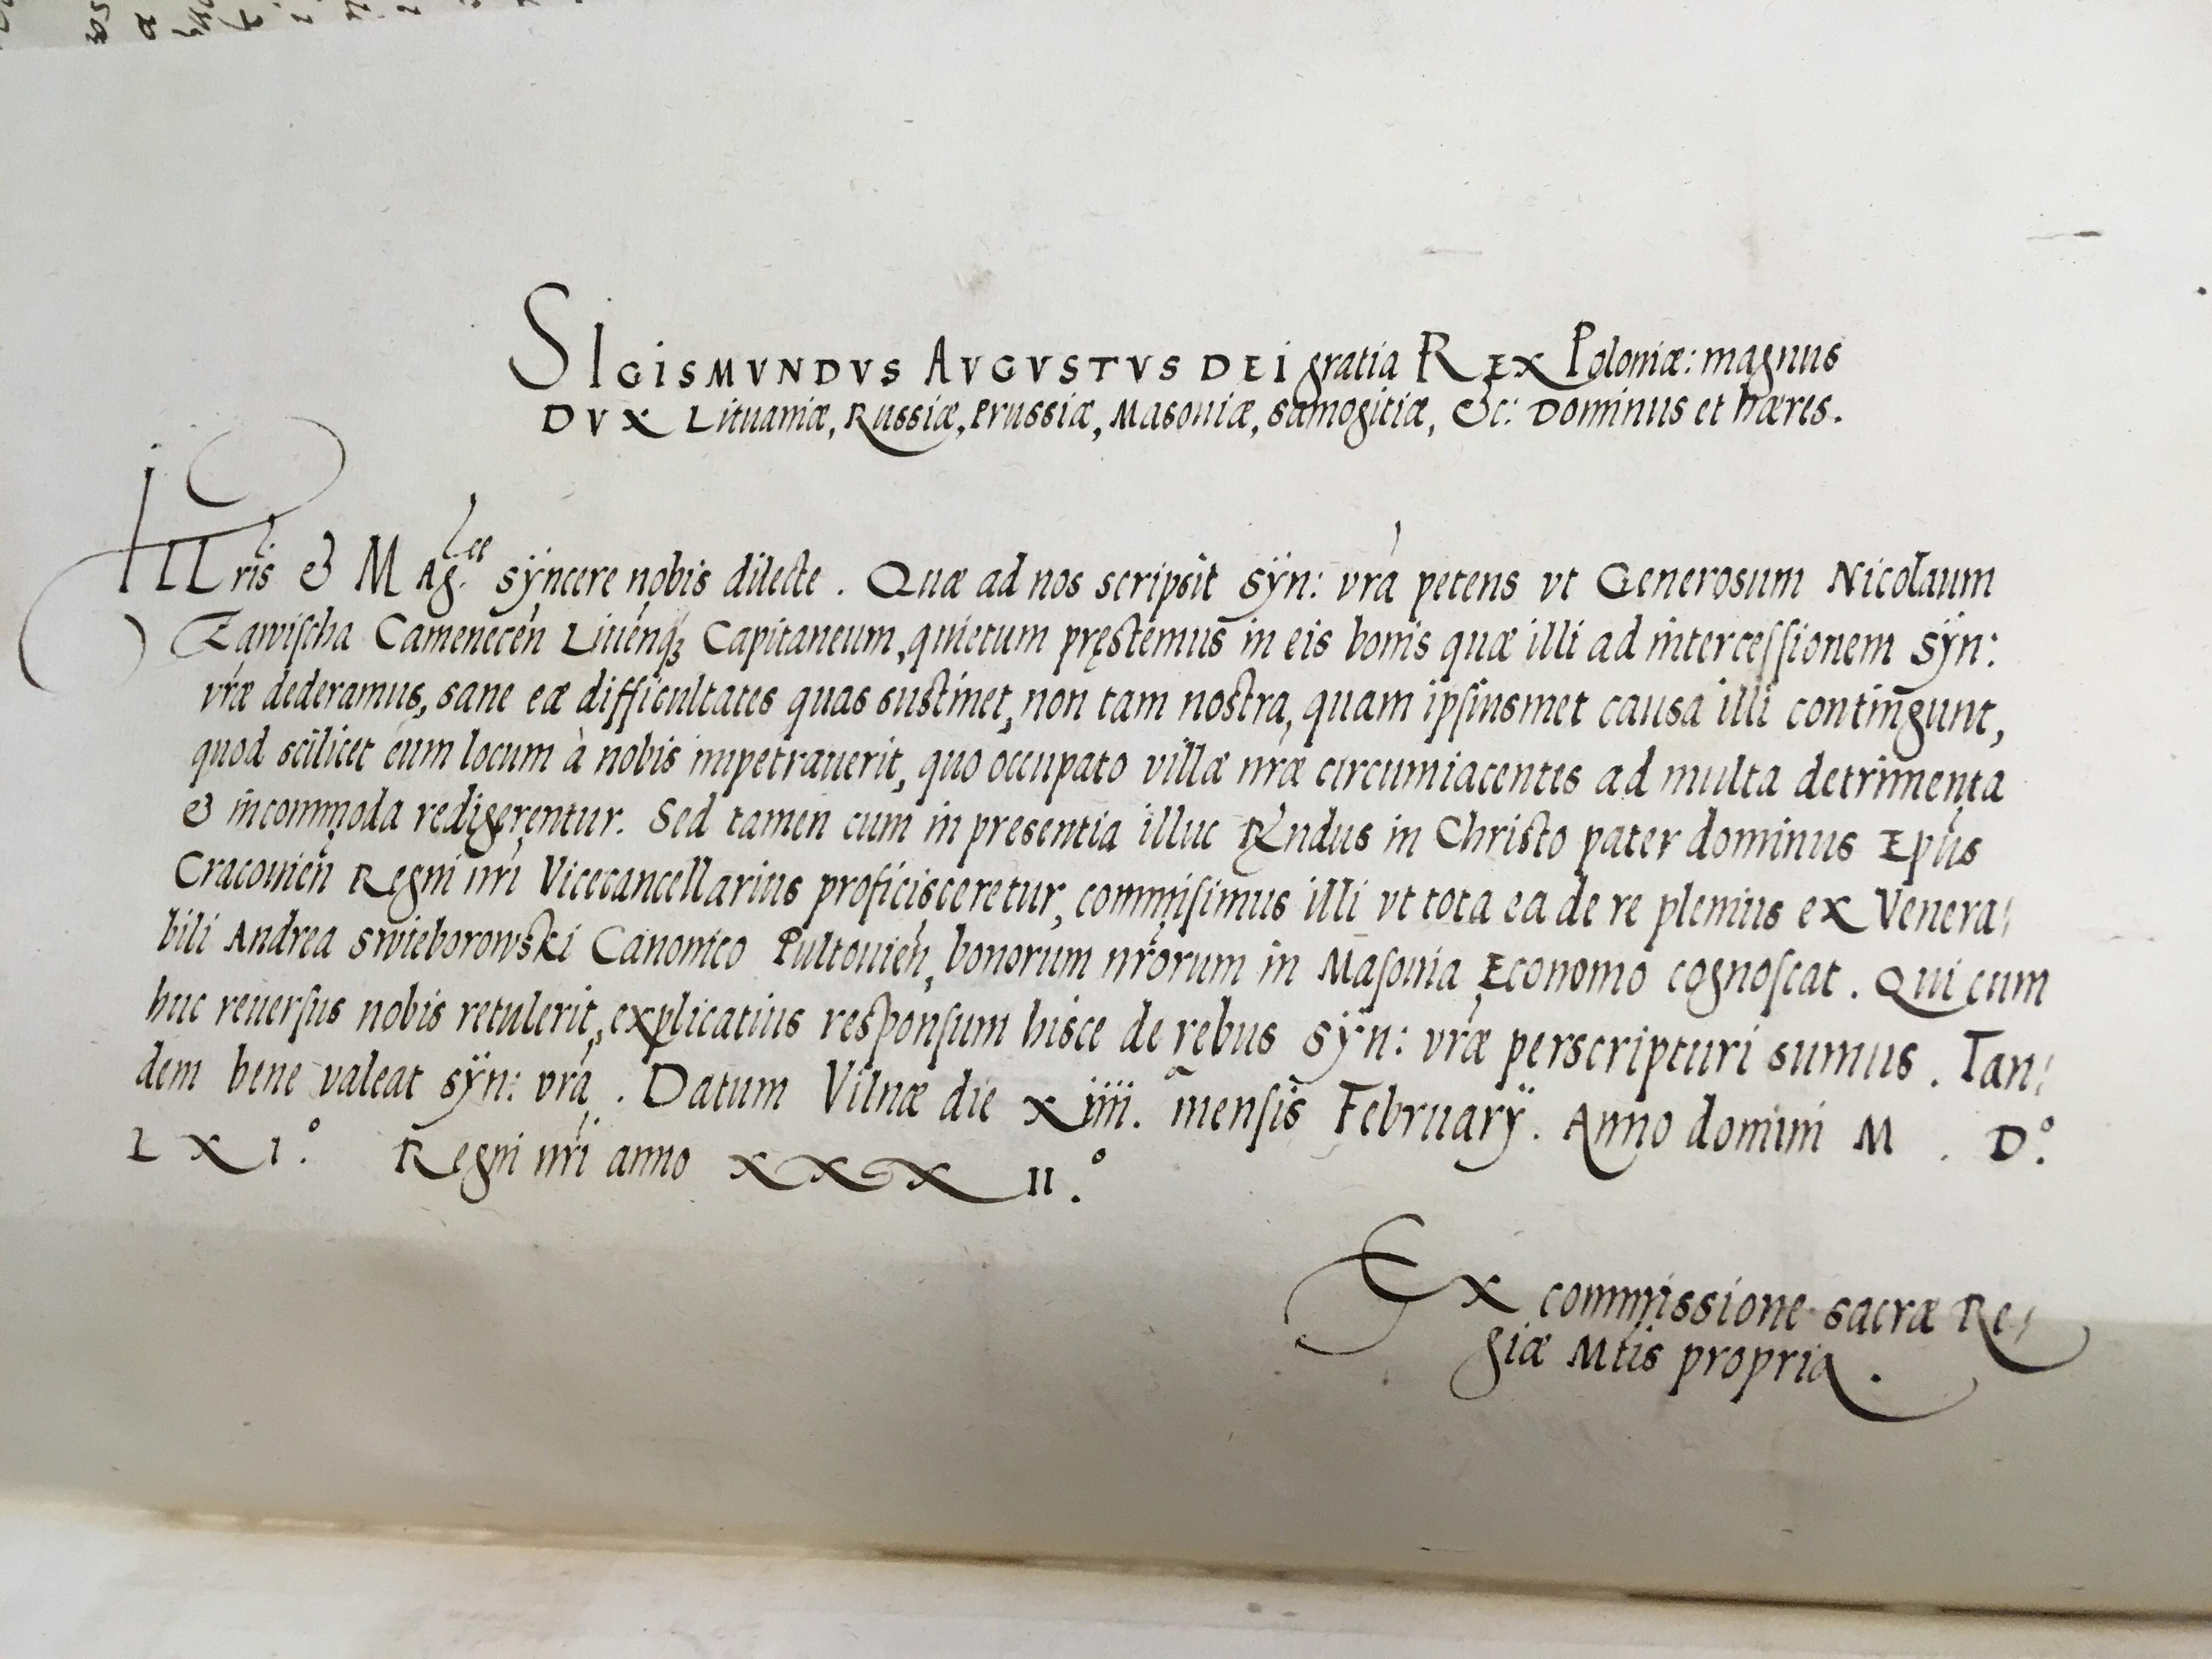 SIGISMVNDVS AVGVSTVS DEI gratia REX Poloniæ: magnus
DVX Lituaniæ, Russiæ, Prussiæ, Masouiæ, Samogitiæ, &c: Dominus et hæres.
Illris & Mag.ce sÿncere nobis dilecte. Quæ ad nos scripsit Sÿn: vrã petens vt Generosum Nicolaum
Zawischa Camenecen̄ Liuen̄q₃ Capitaneum, quietum pręstemus in eis bonis quæ illi ad intercessionem Sÿn:
vræ dederamus, sane eæ difficultates quas sustinet, non tam nostra, quam ipsiusmet causa illi contingunt,
quod scilicet eum locum à nobis impetrauerit, quo occupato villæ nræ circumiacentes ad multa detrimenta
& incommoda redigerentur. Sed tamen cum in presentia illuc Rndus in Christo pater dominus Epus
Cracouien̄ Regni nri Vicecancellarius proficisceretur, commisimus illi vt tota ea de re plenius ex Venera/
bili Andrea Swieborowski Canonico Pultouien̄, bonorum nrorum in Masouia Economo cognoscat. Qui cum
huc reuersus nobis retulerit, explicatius responsum hisce de rebus Sÿn: vræ perscripturi sumus. Tan/
dem bene valeat sÿn: vrã. Datum Vilnæ die xiiii. mensis Februarÿ. Anno domini M . D.º
LXI.º Regni nri anno XXXII.º
Ex commissione sacræ Re/
giæ Mtis propria.